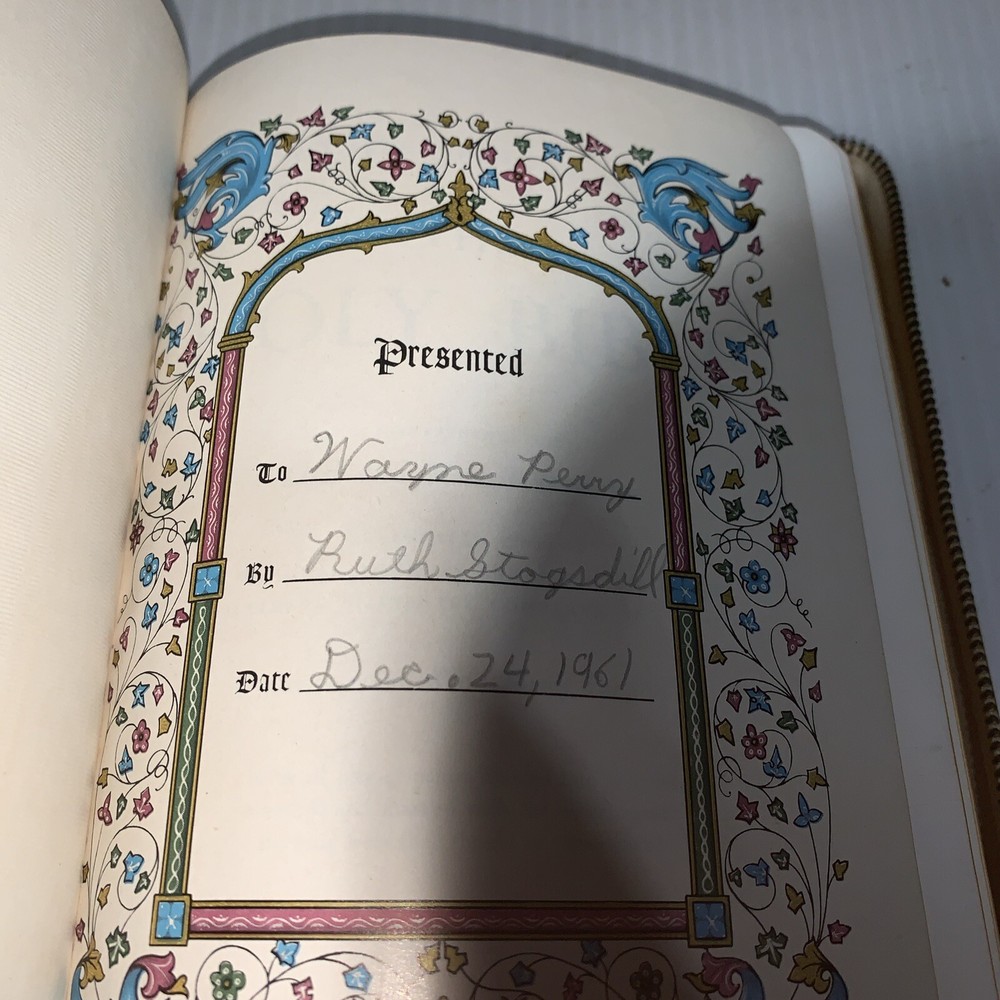 Presented
To Wayne Perry
By Ruth Stogsdill
Date Dec. 24, 1961